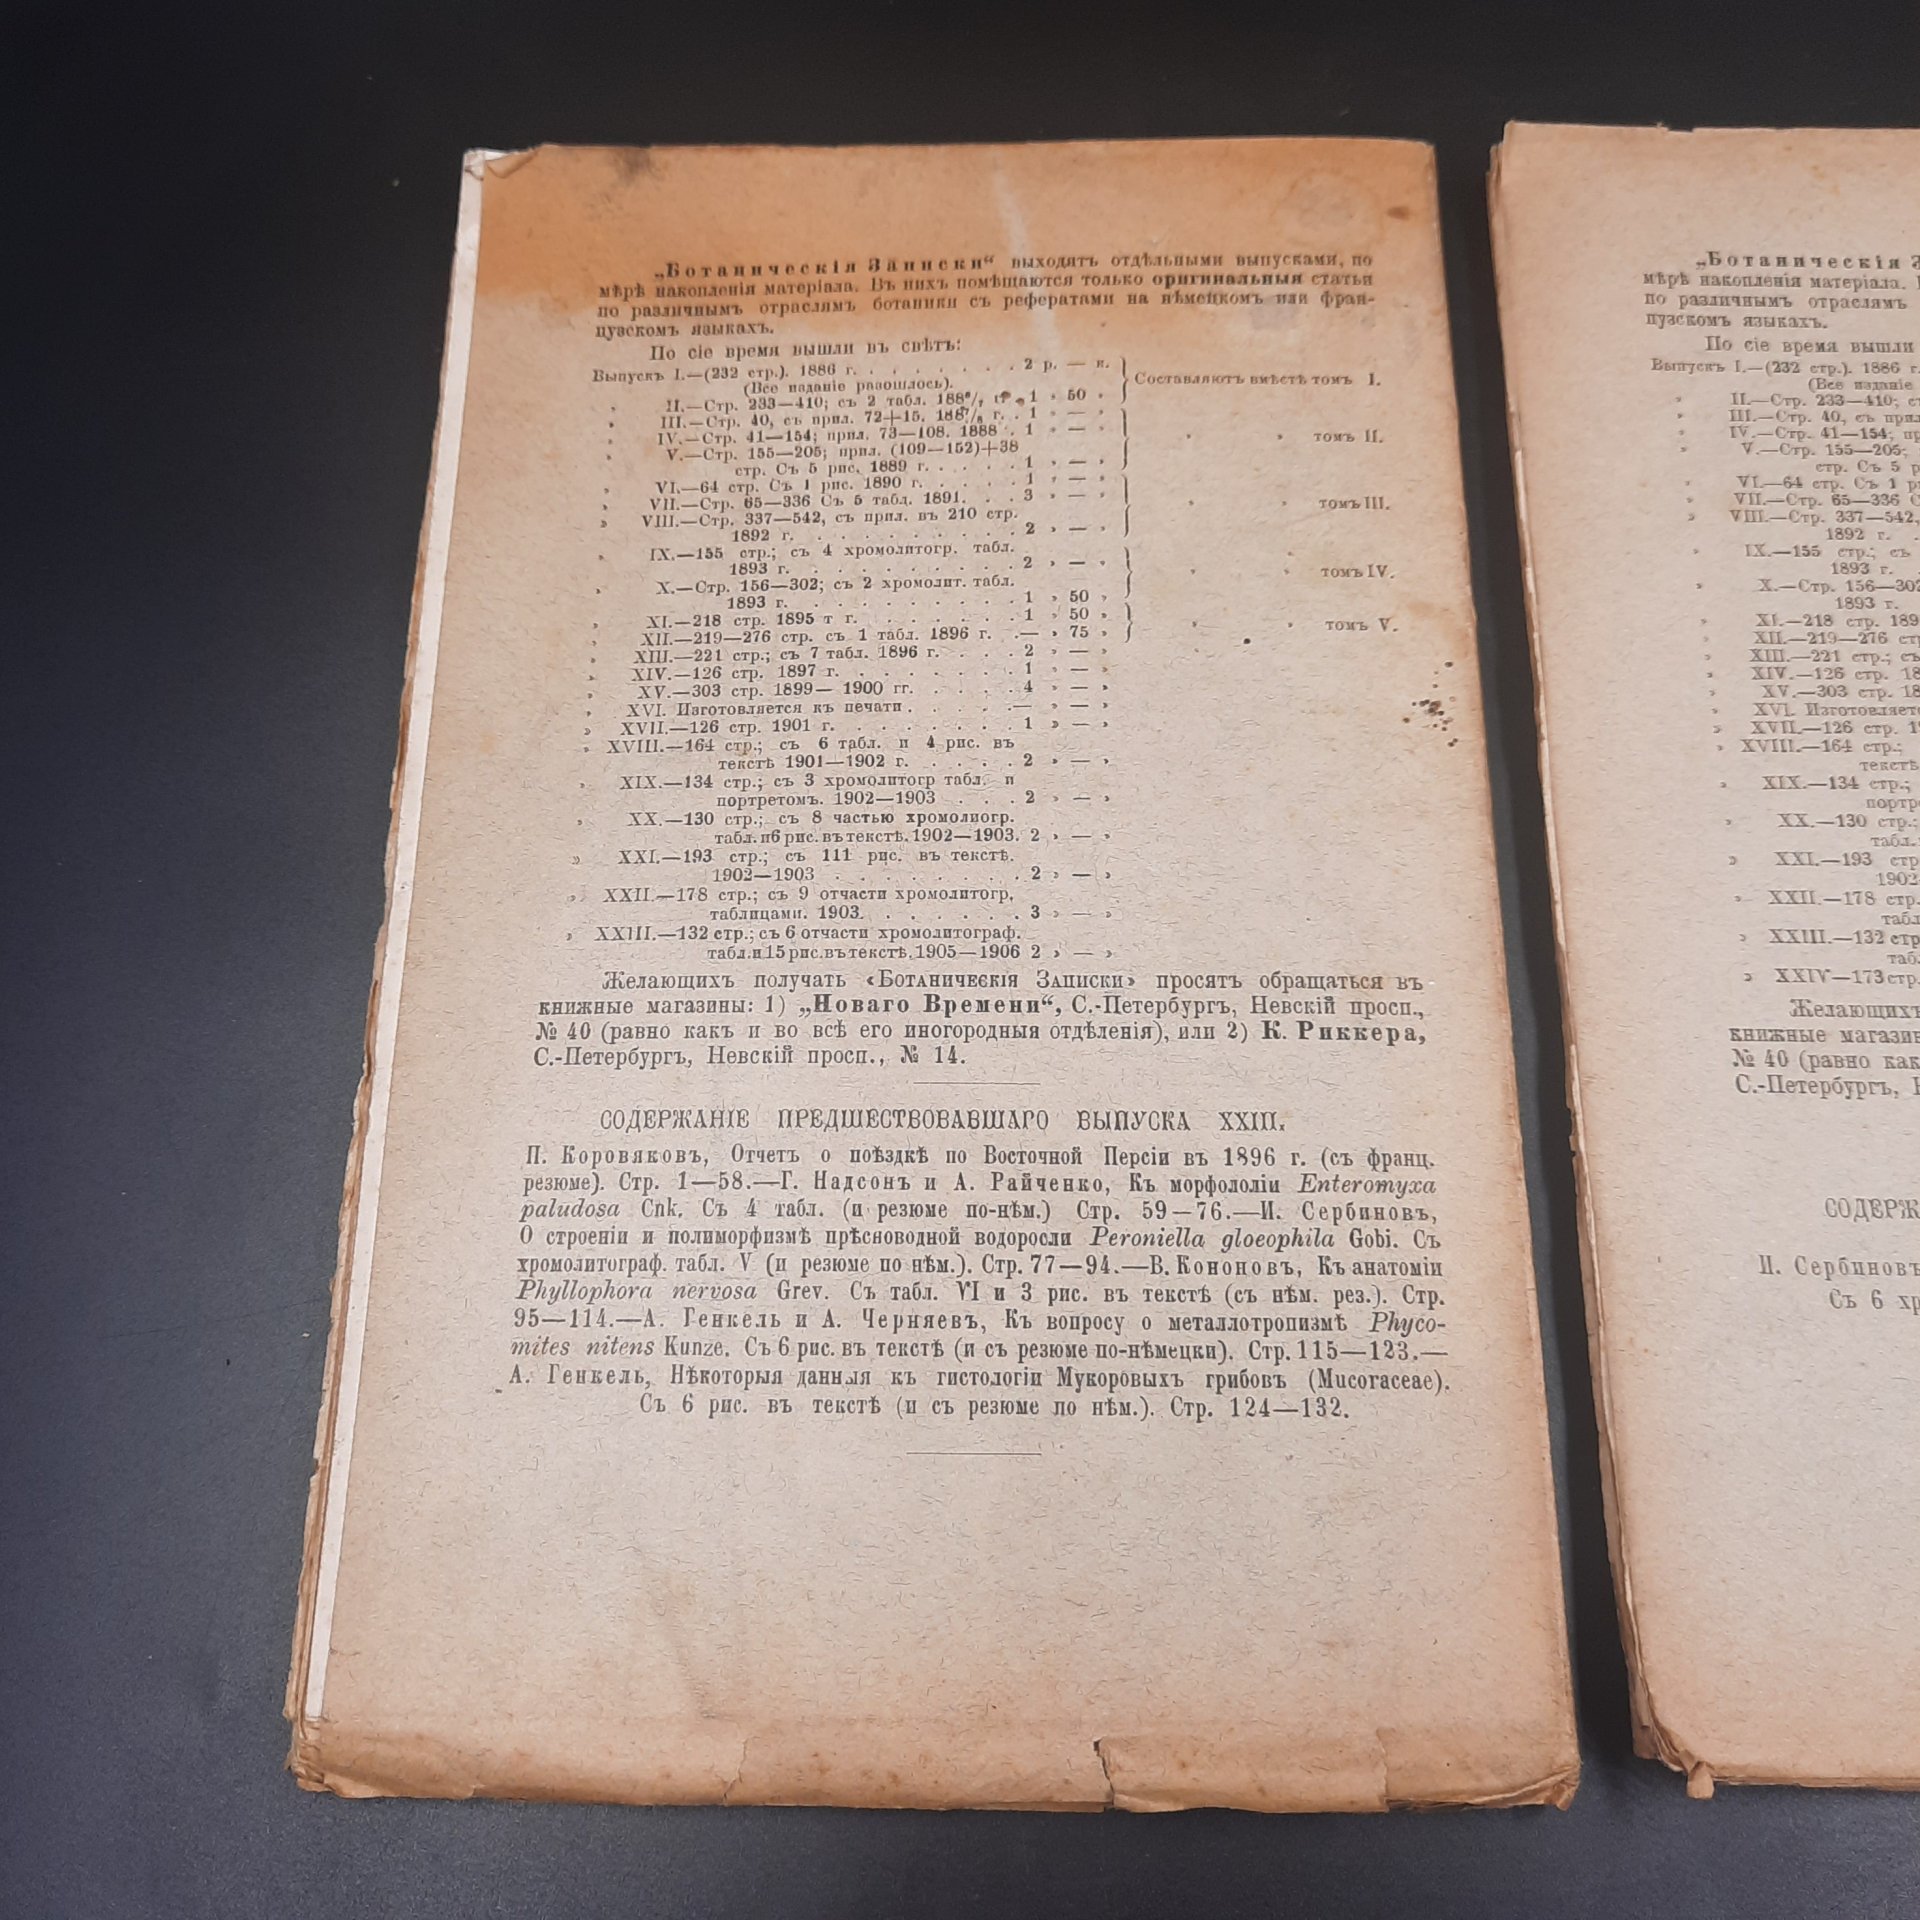 „Ботаническія Записки“ выходятъ отдѣльными выпусками, по
мѣрѣ накопленія матеріала. Въ нихъ помѣщаются только оригинальныя статьи
по различнымъ отраслямъ ботаники съ рефератами на нѣмецкомъ или фран-
цузскомъ языкахъ.
По сіе время вышли въ свѣтъ:
Выпускъ I.—(232 стр.). 1886 г. . . . . . . . 2 р. — к.
(Все изданіе разошлось). Составляютъ вмѣстѣ томъ I.
„ II.—Стр. 233—410; съ 2 табл. 188 г. 1 „ 50 „
„ III.—Стр. 40, съ прил. 72+15. 1887/8 г. . 1 „ — „
„ IV.—Стр. 41—154; прил. 73—108. 1888 . 1 „ — „ „ „ томъ II.
„ V.—Стр. 155—205; прил. (109—152)+38
стр. Съ 5 рис. 1889 г. . . . . 1 „ — „
„ VI.—64 стр. Съ 1 рис. 1890 г. . . . . . 1 „ — „
„ VII.—Стр. 65—336 Съ 5 табл. 1891. . . 3 „ — „ „ „ томъ III.
„ VIII.—Стр. 337—542, съ прил. въ 210 стр.
1892 г. . . . . . . . . . 2 „ — „
„ IX.—155 стр.; съ 4 хромолитогр. табл.
1893 г. . . . . . . . . . 2 „ — „ „ „ томъ IV.
„ X.—Стр. 156—302; съ 2 хромолит. табл.
1893 г. . . . . . . . . . 1 „ 50 „
„ XI.—218 стр. 1895 т г. . . . . . . . 1 „ 50 „
„ XII.—219—276 стр. съ 1 табл. 1896 г. .— „ 75 „ „ „ томъ V.
„ XIII.—221 стр.; съ 7 табл. 1896 г. . . . 2 „ — „
„ XIV.—126 стр. 1897 г. . . . . . . . . 1 „ — „
„ XV.—303 стр. 1899— 1900 гг. . . . . . 4 „ — „
„ XVI. Изготовляется къ печати . . . . .— „ — „
„ XVII.—126 стр. 1901 г. . . . . . . . . 1 „ — „
„ XVIII.—164 стр.; съ 6 табл. и 4 рис. въ
текстѣ 1901—1902 г. . . . . . 2 „ — „
„ XIX.—134 стр.; съ 3 хромолитогр табл. и
портретомъ. 1902—1903 . . . 2 „ — „
„ XX.—130 стр.; съ 8 частью хромолиогр.
табл. и 6 рис. въ текстѣ. 1902—1903. 2 „ — „
„ XXI.—193 стр.; съ 111 рис. въ текстѣ.
1902—1903 . . . . . . . . 2 „ — „
„ XXII.—178 стр.; съ 9 отчасти хромолитогр,
таблицами. 1903. . . . . . . 3 „ — „
„ XXIII.—132 стр.; съ 6 отчасти хромолитограф.
табл. и 15 рис. въ текстѣ. 1905—1906 2 „ — „
Желающихъ получать «Ботаническія Записки» просятъ обращаться въ
книжные магазины: 1) „Новаго Времени“, С.-Петербургъ, Невскій просп.,
№ 40 (равно какъ и во всѣ его иногородныя отдѣленія), или 2) К. Риккера,
С.-Петербургъ, Невскій просп., № 14.
СОДЕРЖАНІЕ ПРЕДШЕСТВОВАВШАГО ВЫПУСКА XXIII.
П. Коровяковъ, Отчетъ о поѣздкѣ по Восточной Персіи въ 1896 г. (съ франц.
резюме). Стр. 1—58.—Г. Надсонъ и А. Райченко, Къ морфололіи Enteromyxa
paludosa Cnk. Съ 4 табл. (и резюме по-нѣм.) Стр. 59—76.—И. Сербиновъ,
О строеніи и полиморфизмѣ прѣсноводной водоросли Peroniella gloeophila Gobi. Съ
хромолитограф. табл. V (и резюме по нѣм.). Стр. 77—94.—В. Кононовъ, Къ анатоміи
Phyllophora nervosa Grev. Съ табл. VI и 3 рис. въ текстѣ (съ нѣм. рез.). Стр.
95—114.—А. Генкель и А. Черняевъ, Къ вопросу о металлотропизмѣ Phyco-
mites nitens Kunze. Съ 6 рис. въ текстѣ (и съ резюме по-нѣмецки). Стр. 115—123.—
А. Генкель, Нѣкоторыя данныя къ гистологіи Мукоровыхъ грибовъ (Mucoraceae).
Съ 6 рис. въ текстѣ (и съ резюме по нѣм.). Стр. 124—132.
„Ботаническія
мѣрѣ накопленія матеріала.
по различнымъ отраслямъ
цузскомъ языкахъ.
По сіе время вышли
Выпускъ I.—(232 стр.). 1886 г.
(Все изданіе
„ II.—Стр. 233—410;
„ III.—Стр. 40, съ
„ IV.—Стр. 41—154;
„ V.—Стр. 155—205;
стр. Съ 5
„ VI.—64 стр. Съ 1
„ VII.—Стр. 65—336
„ VIII.—Стр. 337—542,
1892 г. .
„ IX.—155 стр.; съ
1893 г.
„ X.—Стр. 156—302
1893 г.
„ XI.—218 стр.
„ XII.—219—276
„ XIII.—221 стр.; съ
„ XIV.—126 стр.
„ XV.—303 стр.
„ XVI. Изготовляется
„ XVII.—126 стр.
„ XVIII.—164 стр.;
текстѣ
„ XIX.—134 стр.;
„ XX.—130 стр.;
табл.
„ XXI.—193
„ XXII.—178 стр.
„ XXIII.—132 стр
„ XXIV—173 стр.
Желающихъ
книжные
№ 40 (равно
С.-Петербургъ,
И. Сербиновъ
Съ 6